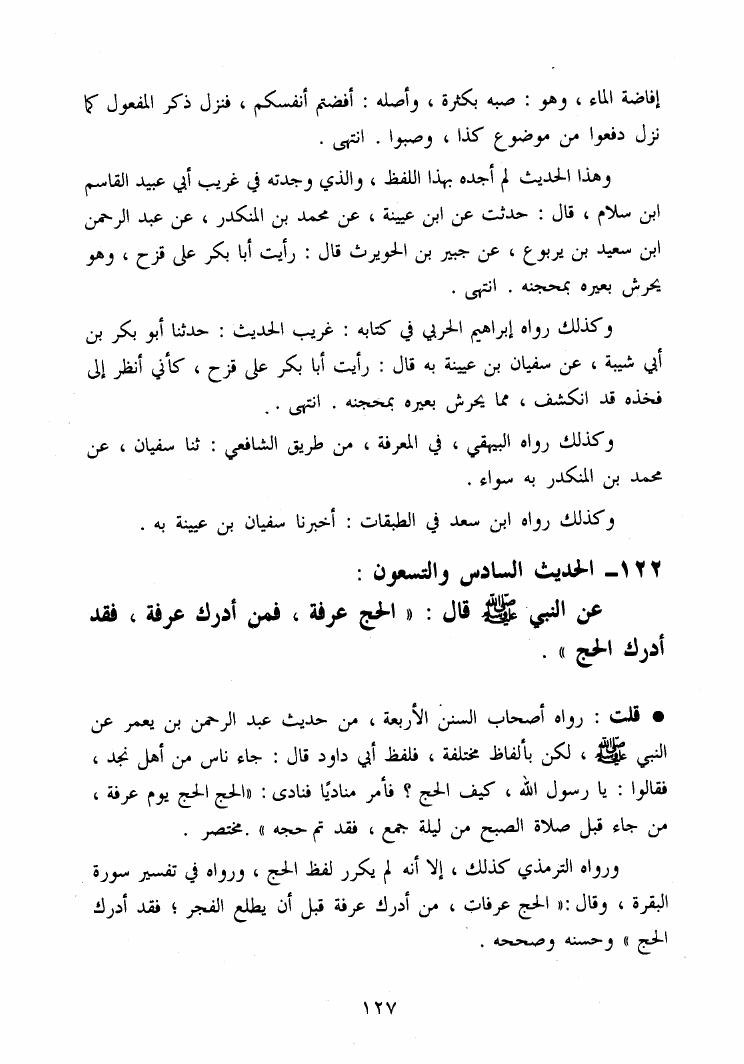 إفاضة الماء ، وهو : صبه بكثرة ، وأصله : أفضتم أنفسكم ، فنزل ذكر المفعول كما
نزل دفعوا من موضوع كذا ، وصبوا . انتهى .
وهذا الحديث لم أجده بهذا اللفظ ، والذي وجدته في غريب أبي عبيد القاسم
ابن سلام ، قال : حدثت عن ابن عيينة ، عن محمد بن المنكدر ، عن عبد الرحمن
ابن سعيد بن يربوع ، عن جبير بن الحويرث قال : رأيت أبا بكر على قزح ، وهو
يحرش بعيره بمحجنه . انتهى .
وكذلك رواه إبراهيم الحربي في كتابه : غريب الحديث : حدثنا أبو بكر بن
أبي شيبة ، عن سفيان بن عيينة به قال : رأيت أبا بكر على قزح ، كأني أنظر إلى
فخذه قد انكشف ، مما يحرش بعيره بمحجنه . انتهى .
وكذلك رواه البيهقي ، في المعرفة ، من طريق الشافعي : ثنا سفيان ، عن
محمد بن المنكدر به سواء .
وكذلك رواه ابن سعد في الطبقات : أخبرنا سفيان بن عيينة به .
١٢٢ـ الحديث السادس والتسعون :
عن النبي ﷺ قال : « الحج عرفة ، فمن أدرك عرفة ، فقد
أدرك الحج » .
● قلت : رواه أصحاب السنن الأربعة ، من حديث عبد الرحمن بن يعمر عن
النبي ﷺ ، لكن بألفاظ مختلفة ، فلفظ أبي داود قال : جاء ناس من أهل نجد ،
فقالوا : يا رسول الله ، كيف الحج ؟ فأمر مناديًا فنادى : «الحج الحج يوم عرفة ،
من جاء قبل صلاة الصبح من ليلة جمع ، فقد تم حجه » .مختصر .
ورواه الترمذي كذلك ، إلا أنه لم يكرر لفظ الحج ، ورواه في تفسير سورة
البقرة ، وقال :« الحج عرفات ، من أدرك عرفة قبل أن يطلع الفجر ؛ فقد أدرك
الحج » وحسنه وصححه .
١٢٧